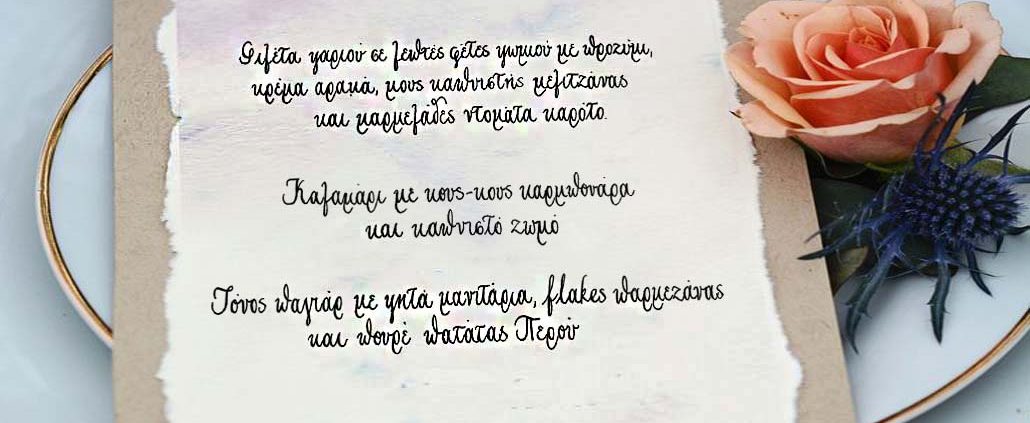 Φιλέτα γαριού σε λεπτές φέτες ψωμιού με προζύμι,
κρέμα αραμά, μους καπνιστής μελιτζάνας
και μαρμελάδες ντομάτα καρότο.
Καλαμάρι με κους-κους καρμπονάρα
και καπνιστό ζωμό
Τόνος παγιάρ με ψητά μανιτάρια, flakes παρμεζάνας
και πουρέ πατάτας Περού